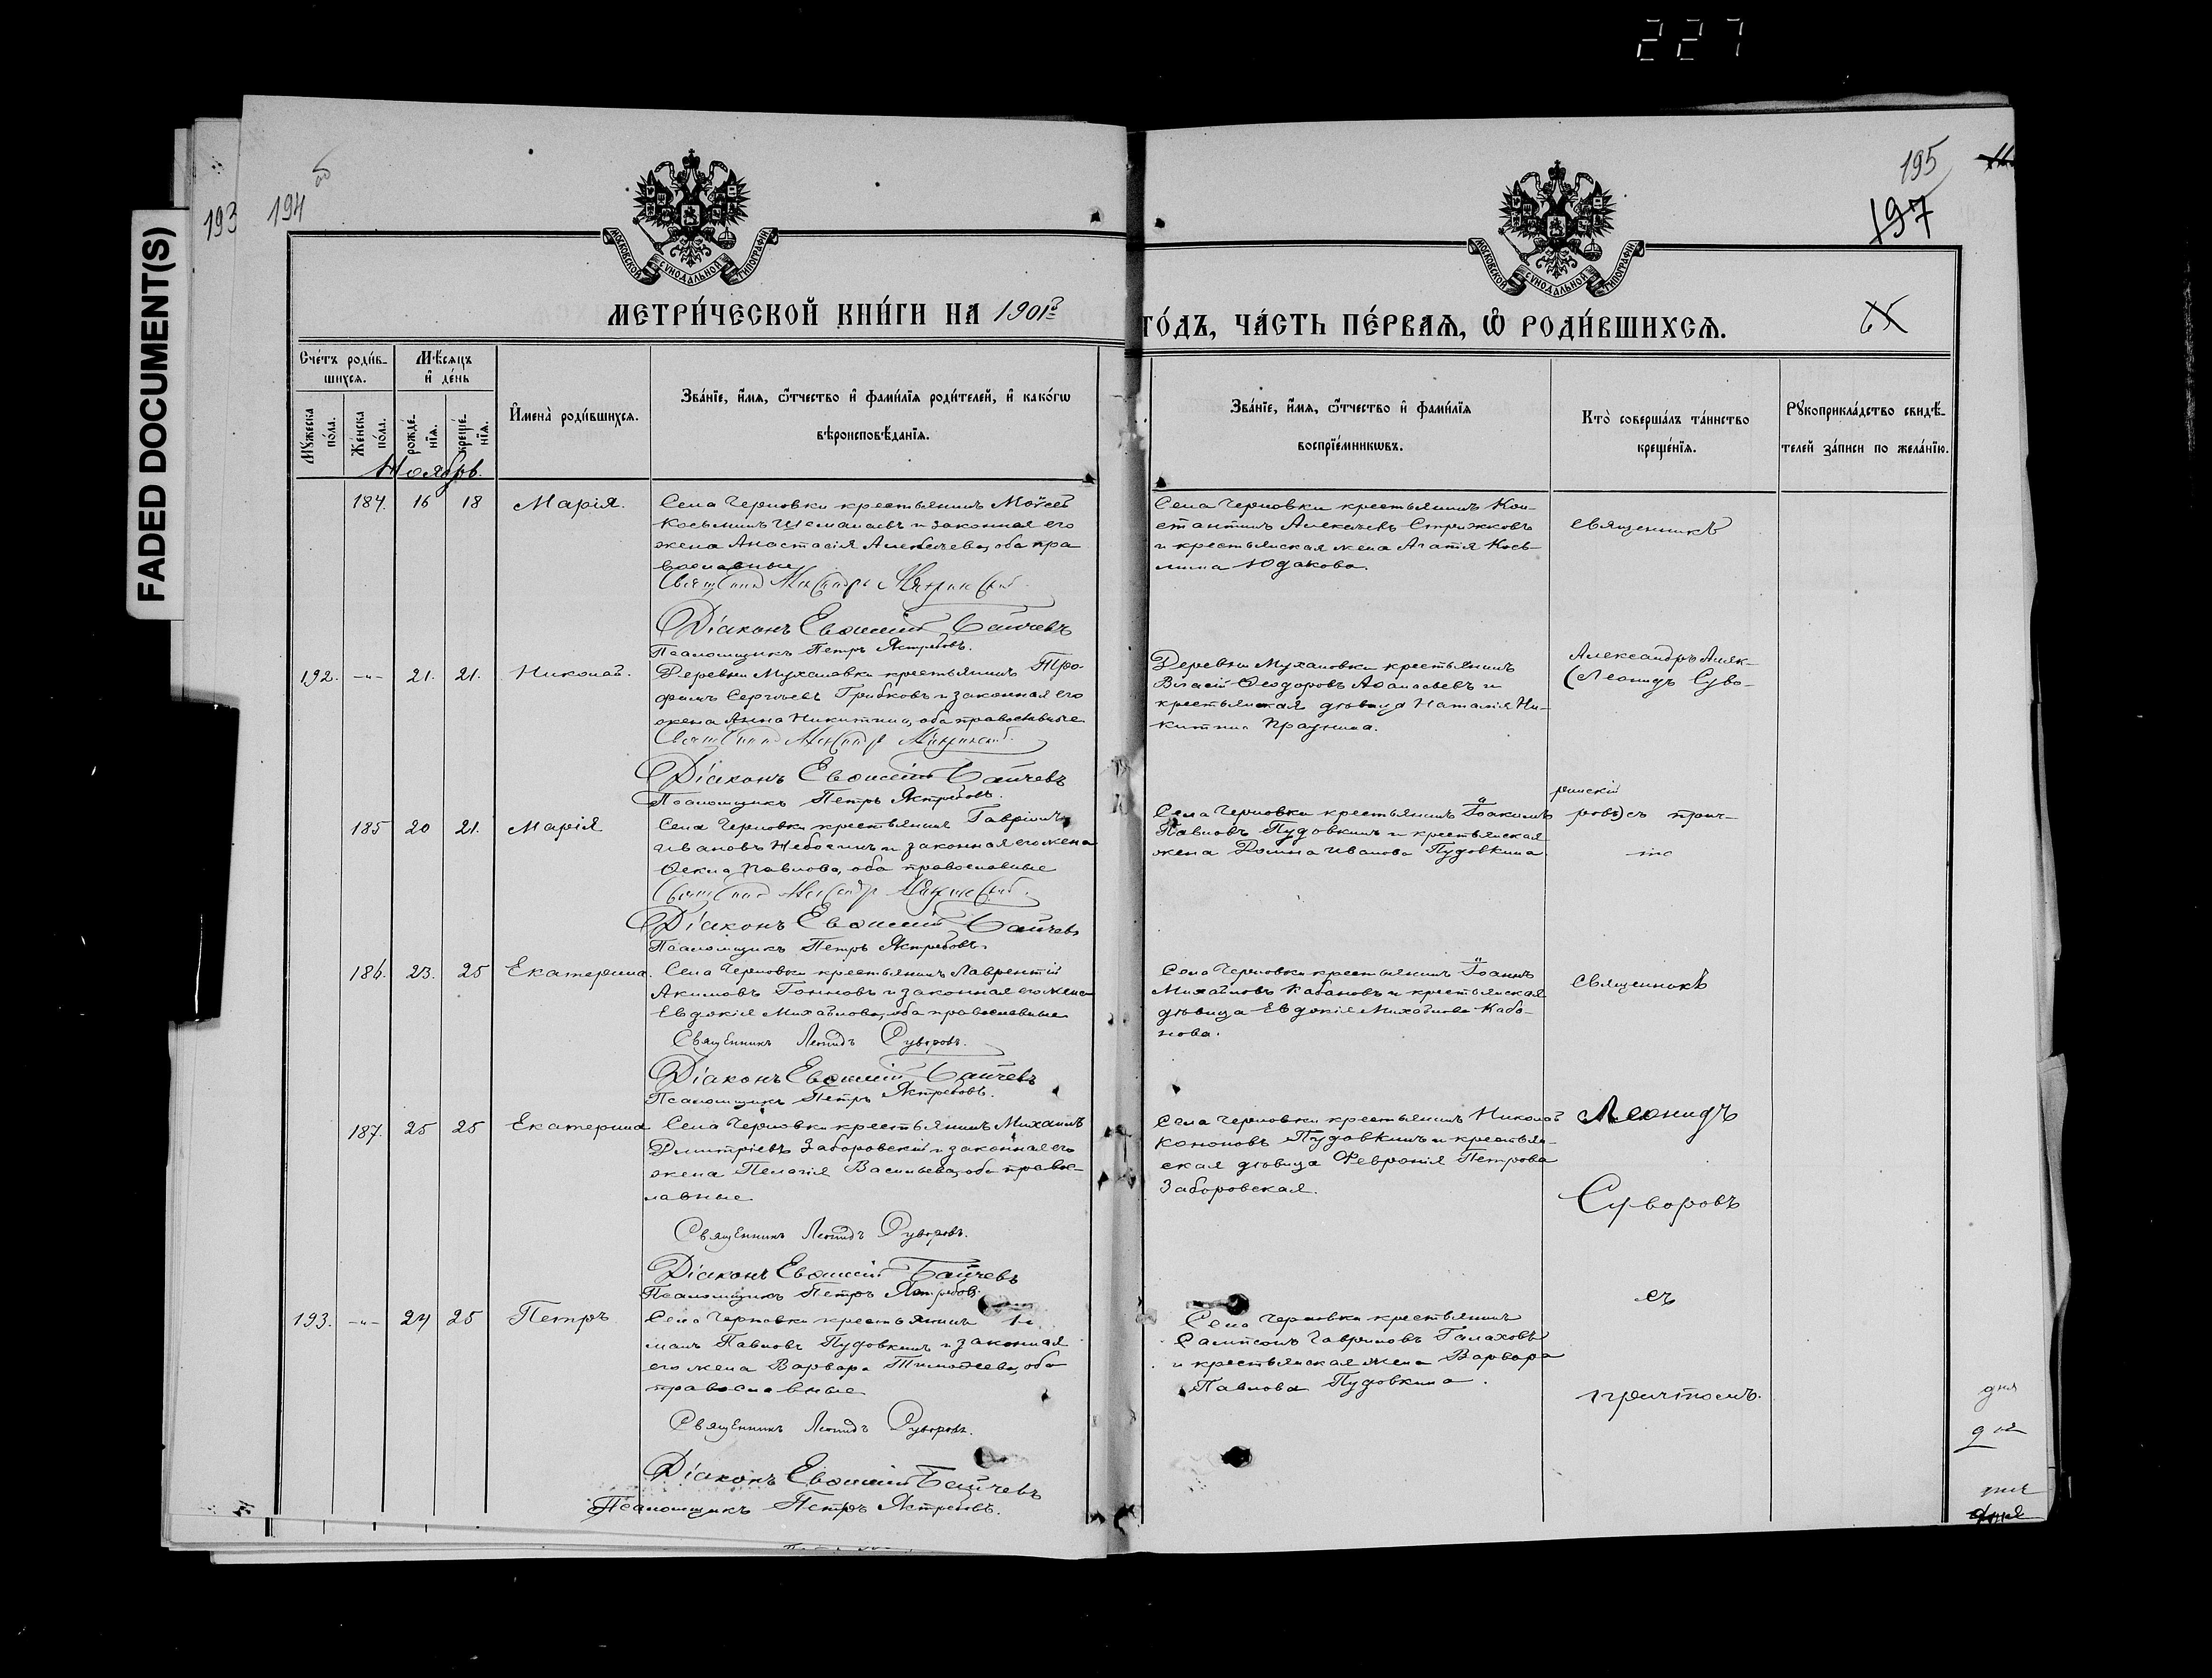 227
FADED DOCUMENT(S)
193
194 об
195
197
МОСКОВСКОЙ СУНОДАЛЬНОЙ ТИПОГРАФІИ
МОСКОВСКОЙ СУНОДАЛЬНОЙ ТИПОГРАФІИ
МЕТРИ́ЧЕСКОЙ КНИ́ГИ НА 1901 г.
ГО́ДЪ, ЧА́СТЬ ПЕ́РВАѦ, Ѡ РОДИ́ВШИХСѦ.
Сче́тъ роди́в-
шихсѧ.
Мꙋ́жеска
по́ла.
Же́нска
по́ла.
Мѣ́сѧцъ
и҆ де́нь
рожде́-
нїѧ.
креще́-
нїѧ.
И҆мена̀ роди́вшихсѧ.
Зва́нїе, и҆́мѧ, ѻ҆́тчество и҆ фами́лїѧ роди́телей, и҆ како́гѡ
вѣроисповѣ́данїѧ.
Зва́нїе, и҆́мѧ, ѻ҆́тчество и҆ фами́лїѧ
воспрїе́мникѡвъ.
Кто̀ соверша́лъ та́инство
креще́нїѧ.
Рꙋкоприкла́дство свидѣ́-
телей за́писи по жела́нїю.
Ноябрь.
184. 16 18 Марія.
Села Черновки крестьянинъ Моѵсей
Косьминъ Шемалаевъ и законная его
жена Анастасія Алексѣева, оба пра
вославные
Діаконъ Евѳимій Байчевъ
Псаломщикъ Петръ Ястребовъ.
Села Черновки крестьянинъ Кон-
стантинъ Алексѣевъ Стрижковъ
и крестьянская жена Агаѳія Кось-
мина Юдакова.
священникъ
192. -"- 21. 21. Николай.
Деревни Мухановки крестьянинъ Тро-
фимъ Сергѣевъ Грибковъ и законная его
жена Анна Никитина, оба православные
Діаконъ Евѳимій Байчевъ
Псаломщикъ Петръ Ястребовъ.
Деревни Мухановки крестьянинъ
Власій Ѳеодоровъ Аѳанасьевъ и
крестьянская дѣвица Наталія Ни-
китина
Александръ
(Леонидъ Суво-
185 20 21. Марія
Села Черновки крестьянинъ Гавріилъ
Ивановъ и законная его жена
Ѳекла Павлова, оба православные
Діаконъ Евѳимій Байчевъ
Псаломщикъ Петръ Ястребовъ.
Села Черновки крестьянинъ Іоакимъ
Павловъ Пудовкинъ и крестьянская
жена Домна Иванова Пудовкина.
ринскій
ровъ) съ прич-
186. 23. 25 Екатерина.
Села Черновки крестьянинъ Лаврентій
Акимовъ и законная его жена
Евдокія Михайлова, оба православные
Священникъ Леонидъ Суворовъ.
Діаконъ Евѳимій Байчевъ
Псаломщикъ Петръ Ястребовъ.
Села Черновки крестьянинъ Іоаннъ
Михайловъ Кабановъ и крестьянская
дѣвица Евдокія Михайлова Каба-
нова.
священникъ
187. 25 25 Екатерина
Села Черновки крестьянинъ Михаилъ
Димитріевъ Заборовскій и законная его
жена Пелагія Васильева, оба правос-
лавные
Священникъ Леонидъ Суворовъ.
Діаконъ Евѳимій Байчевъ
Псаломщикъ Петръ Ястребовъ.
Села Черновки крестьянинъ Николай
Кононовъ Пудовкинъ и крестьян-
ская дѣвица Февронія Петрова
Заборовская.
Леонидъ
Суворовъ
193. -"- 24 25 Петръ
Села Черновки крестьянинъ
Павловъ Пудовкинъ и законная
его жена Варвара Тимоѳеева, оба
православные
Священникъ Леонидъ Суворовъ.
Діаконъ Евѳимій Байчевъ
Псаломщикъ Петръ Ястребовъ.
Села Черновки крестьянинъ
Сампсонъ Гавриловъ Галаховъ
и крестьянская жена Варвара
Павлова Пудовкина.
съ
причтомъ.
дня